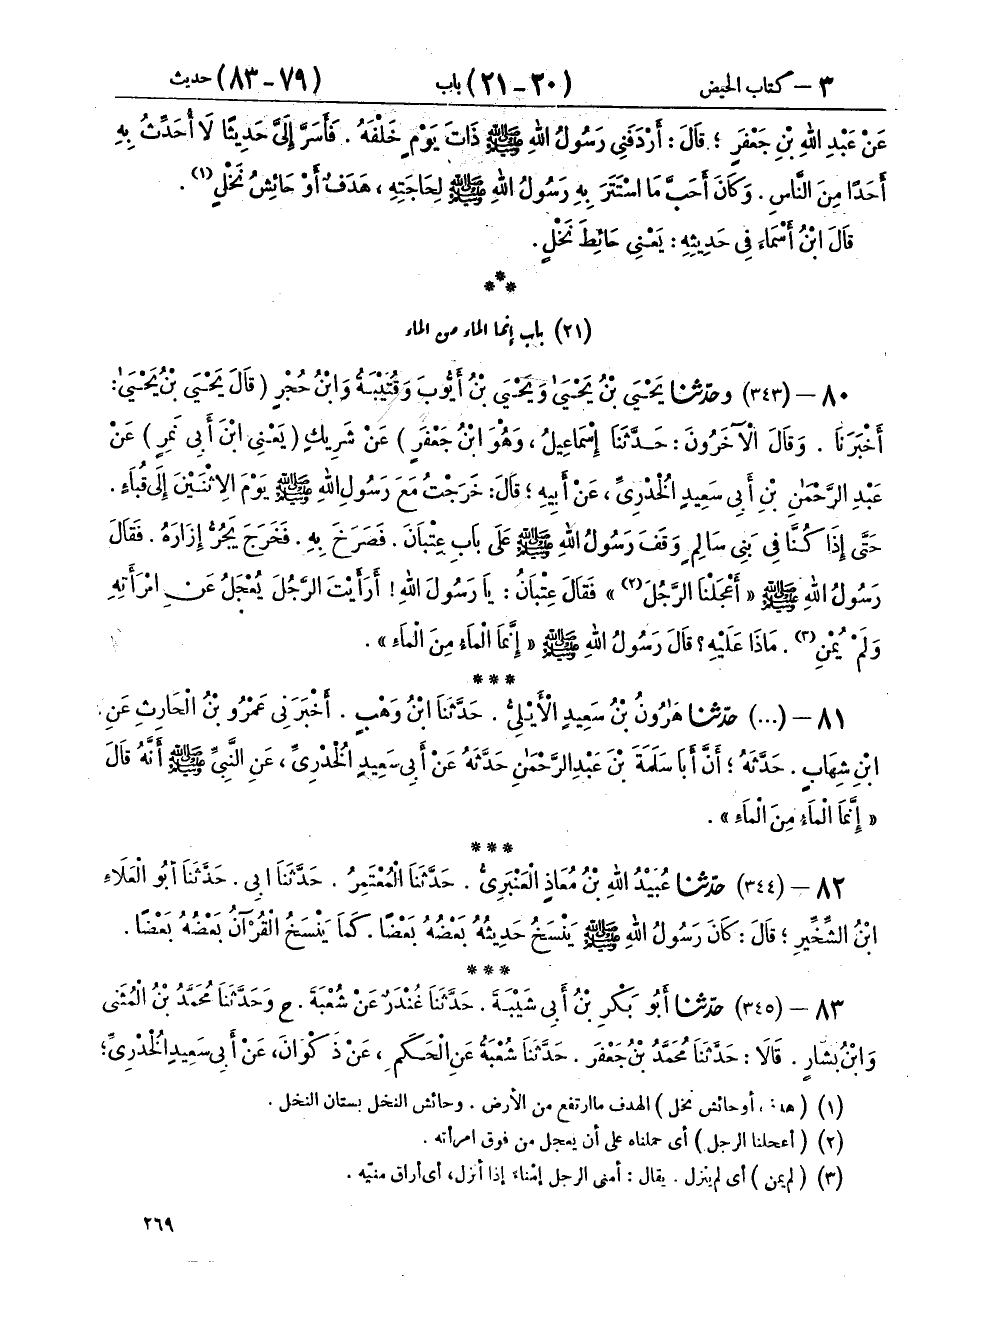 ٣ – كتاب الحيض (٢٠ – ٢١) باب (٧٩ – ٨٣) حديث
عَنْ عَبْدِ اللهِ بْنِ جَعْفَرٍ ؛ قَالَ : أَرْدَفَنِي رَسُولُ اللهِ ﷺ ذَاتَ يَوْمٍ خَلْفَهُ . فَأَسَرَّ إِلَيَّ حَدِيثًا لَا أُحَدِّثُ بِهِ
أَحَدًا مِنَ النَّاسِ . وَكَانَ أَحَبَّ مَا اسْتَتَرَ بِهِ رَسُولُ اللهِ ﷺ لِحَاجَتِهِ ، هَدَفٌ أَوْ حَائِشُ نَخْلٍ (١) .
قَالَ ابْنُ أَسْمَاءَ فِي حَدِيثِهِ : يَعْنِي حَائِطَ نَخْلٍ .
***
(٢١) باب إنما الماء من الماء
٨٠ – (٣٤٣) وحَدَّثَنَا يَحْيَى بْنُ يَحْيَىٰ وَيَحْيَى بْنُ أَيُّوبَ وَقُتَيْبَةُ وَابْنُ حُجْرٍ ( قَالَ يَحْيَى بْنُ يَحْيَىٰ :
أَخْبَرَنَا . وَقَالَ الْآخَرُونَ : حَدَّثَنَا إِسْمَاعِيلُ ، وَهُوَ ابْنُ جَعْفَرٍ ) عَنْ شَرِيكٍ ( يَعْنِي ابْنَ أَبِي نَمِرٍ ) عَنْ
عَبْدِ الرَّحْمَٰنِ بْنِ أَبِي سَعِيدٍ الْخُدْرِيِّ ، عَنْ أَبِيهِ ؛ قَالَ : خَرَجْتُ مَعَ رَسُولِ اللهِ ﷺ يَوْمَ الِاثْنَيْنِ إِلَى قُبَاءٍ .
حَتَّى إِذَا كُنَّا فِي بَنِي سَالِمٍ وَقَفَ رَسُولُ اللهِ ﷺ عَلَى بَابِ عِتْبَانَ . فَصَرَخَ بِهِ . فَخَرَجَ يَجُرُّ إِزَارَهُ . فَقَالَ
رَسُولُ اللهِ ﷺ « أَعْجَلْنَا الرَّجُلَ (٢) » فَقَالَ عِتْبَانُ : يَا رَسُولَ اللهِ ! أَرَأَيْتَ الرَّجُلَ يُعْجَلُ عَنِ امْرَأَتِهِ
وَلَمْ يُمْنِ (٣) . مَاذَا عَلَيْهِ ؟ قَالَ رَسُولُ اللهِ ﷺ « إِنَّمَا الْمَاءُ مِنَ الْمَاءِ » .
***
٨١ – (...) حَدَّثَنَا هَارُونُ بْنُ سَعِيدٍ الْأَيْلِيُّ . حَدَّثَنَا ابْنُ وَهْبٍ . أَخْبَرَنِي عَمْرُو بْنُ الْحَارِثِ عَنِ
ابْنِ شِهَابٍ . حَدَّثَهُ ؛ أَنَّ أَبَا سَلَمَةَ بْنَ عَبْدِ الرَّحْمَٰنِ حَدَّثَهُ عَنْ أَبِي سَعِيدٍ الْخُدْرِيِّ ، عَنِ النَّبِيِّ ﷺ أَنَّهُ قَالَ
« إِنَّمَا الْمَاءُ مِنَ الْمَاءِ » .
***
٨٢ – (٣٤٤) حَدَّثَنَا عُبَيْدُ اللهِ بْنُ مُعَاذٍ الْعَنْبَرِيُّ . حَدَّثَنَا الْمُعْتَمِرُ . حَدَّثَنَا أَبِي . حَدَّثَنَا أَبُو الْعَلَاءِ
ابْنُ الشِّخِّيرِ ؛ قَالَ : كَانَ رَسُولُ اللهِ ﷺ يَنْسَخُ حَدِيثُهُ بَعْضُهُ بَعْضًا . كَمَا يَنْسَخُ الْقُرْآنُ بَعْضُهُ بَعْضًا .
***
٨٣ – (٣٤٥) حَدَّثَنَا أَبُو بَكْرِ بْنُ أَبِي شَيْبَةَ . حَدَّثَنَا غُنْدَرٌ عَنْ شُعْبَةَ . ح وَحَدَّثَنَا مُحَمَّدُ بْنُ الْمُثَنَّى
وَابْنُ بَشَّارٍ . قَالَا : حَدَّثَنَا مُحَمَّدُ بْنُ جَعْفَرٍ . حَدَّثَنَا شُعْبَةُ عَنِ الْحَكَمِ ، عَنْ ذَكْوَانَ ، عَنْ أَبِي سَعِيدٍ الْخُدْرِيِّ ؛
(١) ( هدف ، أو حائش نخل ) الهدف ما ارتفع من الأرض . وحائش النخل بستان النخل .
(٢) ( أعجلنا الرجل ) أى حملناه على أن يعجل من فوق امرأته .
(٣) ( لم يمن ) أى لم ينزل . يقال : أمنى الرجل إمْناءً إذا أنزل ، أى أراق منيّه .
٢٦٩